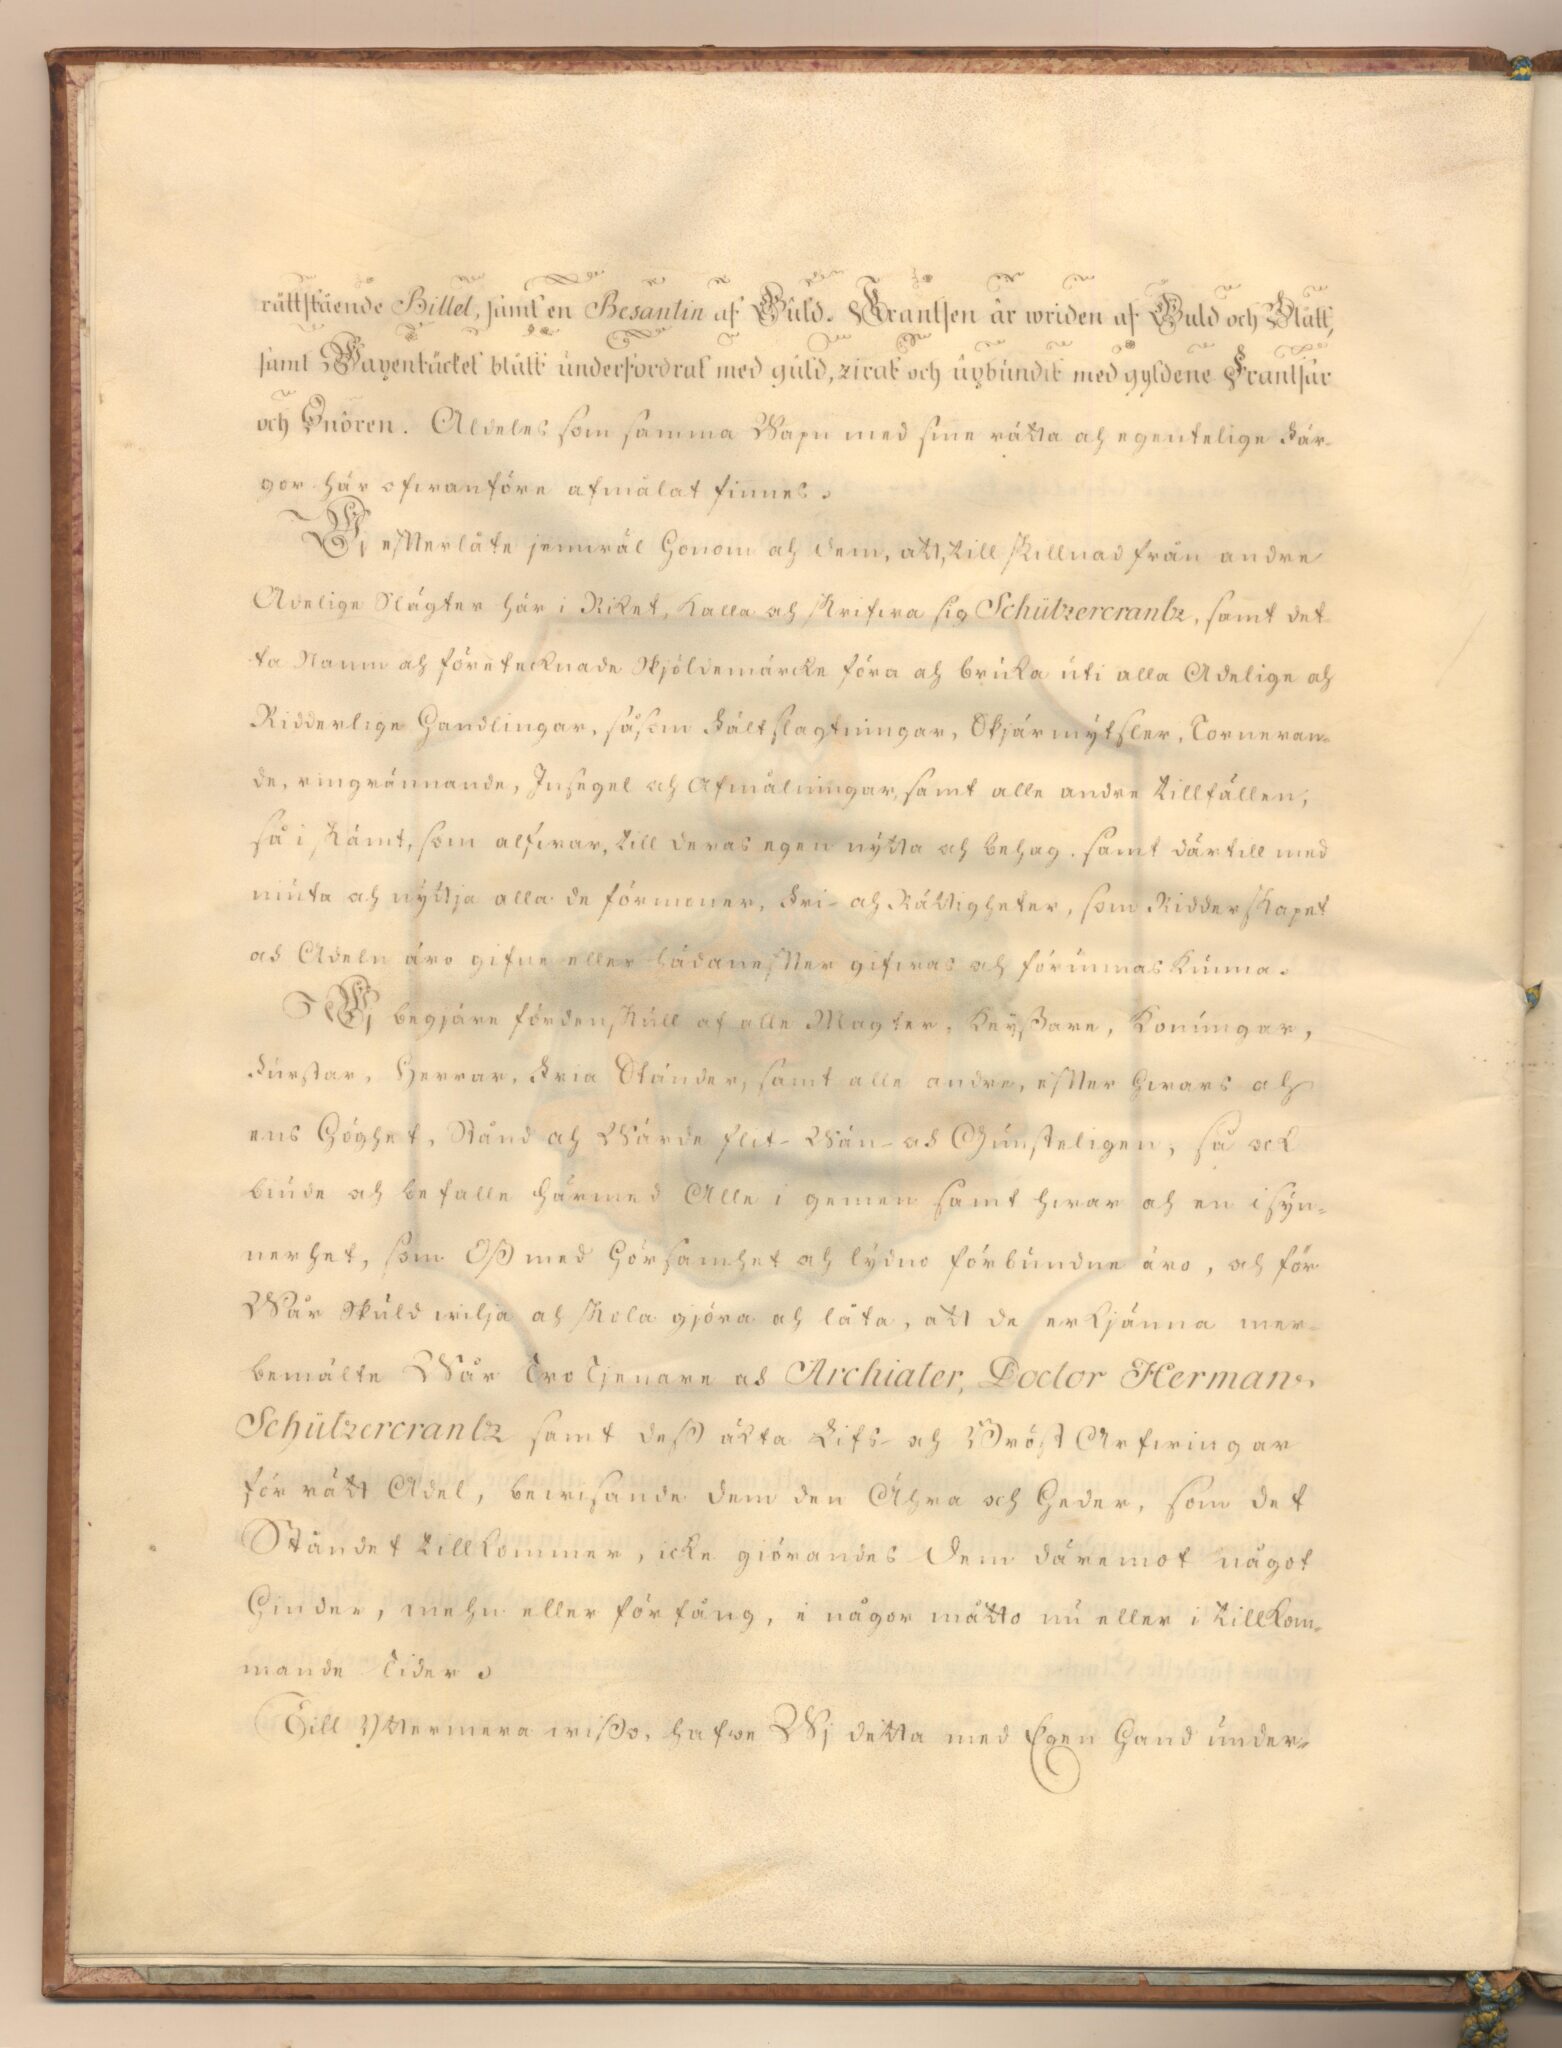 rättstående Billet, samt en Besantin af Guld. Krantsen är wriden af Guld och Blått,
samt Wapentäcket blått underfordrat med guld, zirat och upbundit med gyldene Frantsar
och Snören. Aldeles som samma Wapn med sine rätta och egentelige Fär-
gor här ofwanföre afmålat finnes.
Wj efterlåte jemwäl Honom och dem, att, till skillnad från andre
Adelige Slägter här i Riket, kalla och skrifwa sig Schützercrantz, samt det-
ta Namn och företecknade Skjöldemärcke föra och bruka uti alla Adelige och
Ridderlige Handlingar, såsom Fältslagtningar, Skjärmytsler, Torneran-
de, ringrännande, Insegel och Afmålningar, samt alle andre tillfällen,
så i skämt, som alfwar, till deras egen nytta och behag. samt därtill med
niuta och nyttja alla de förmoner, Fri- och Rättigheter, som Ridderskapet
och Adeln äro gifne eller hädanefter gifwas och förunnas kunna.
Wj begjäre fördenskull af alle Magter, Keyßare, Konungar,
Furstar, Herrar, Fria Ständer, samt alle andre, efter hwars och
ens Höghet, Stånd och Wärde flit- Wän- och Gunsteligen, så ock
biude och befalle härmed Alle i gemen samt hwar och en isyn-
nerhet, som Oß med Hörsamhet och lydno förbundne äro, och för
Wår skuld wilja och skola gjöra och låta, att de erkjänna mer-
bemälte Wår TroTjenare och Archiater, Doctor Herman
Schützercrantz samt deß äkta Lifs- och Bröst Arfwingar
för rätt Adel, bewisande dem den Ähra och Heder, som det
Ståndet tillkommer, icke giörandes Dem däremot något
Hinder, mehn eller förfång, i någor måtto nu eller i tillkom-
mande Tider.
Till Yttermera wißo, hafwe Wj detta med Egen Hand under-